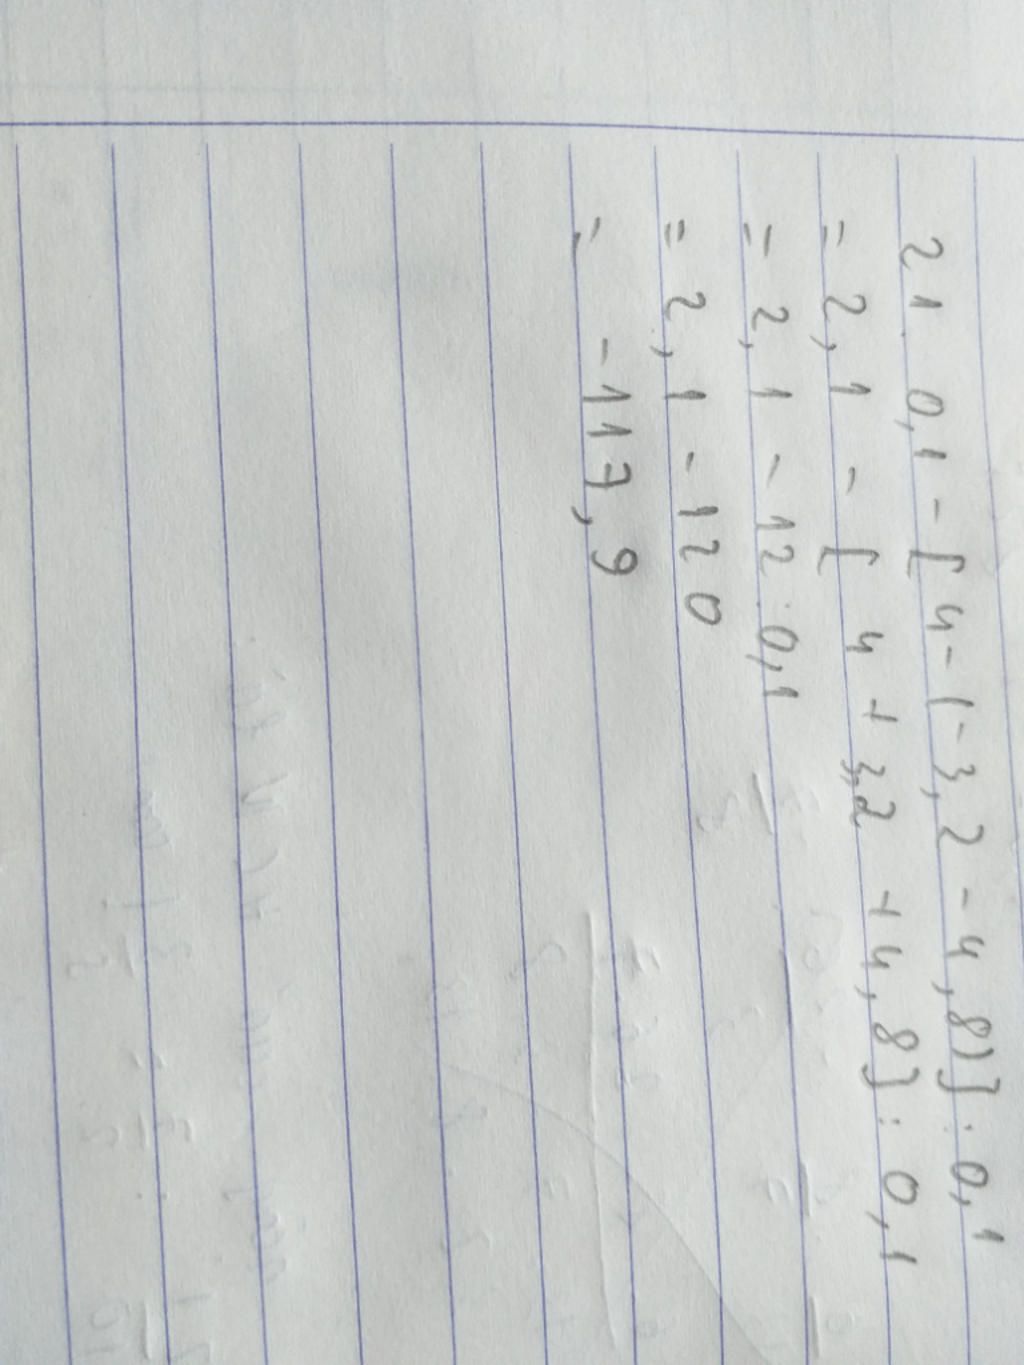 21. 0,1 - [4 - (-3,2 - 4,8)] : 0,1
= 2,1 - [4 + 3,2 + 4,8] : 0,1
= 2,1 - 12 : 0,1
= 2,1 - 120
= -117,9